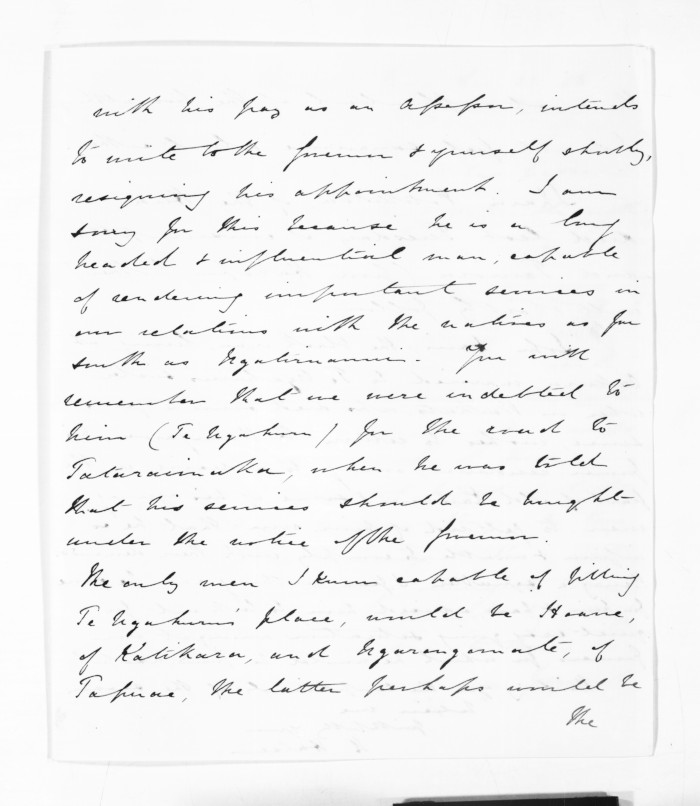 with his pay as an Assessor, intends
to write to the Governor & yourself shortly,
resigning his appointment. I am
sorry for this because he is a long
headed & influential man, capable
of rendering important services in
our relations with the natives as far
south as Ngatiruanui. You will
remember that we were indebted to
him (Te Ngahuru) for the road to
Tataraimaka, when he was told
that his services should be brought
under the notice of the Governor.
The only men I know capable of filling
Te Ngahuru's place, would be Hoane,
of Katikara, and Ngarangomate, of
Tapuae, the latter perhaps would be
the